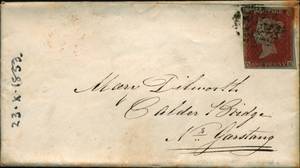 23·X·1853.
Mary Dilworth
Calder Bridge
Nr Garstang